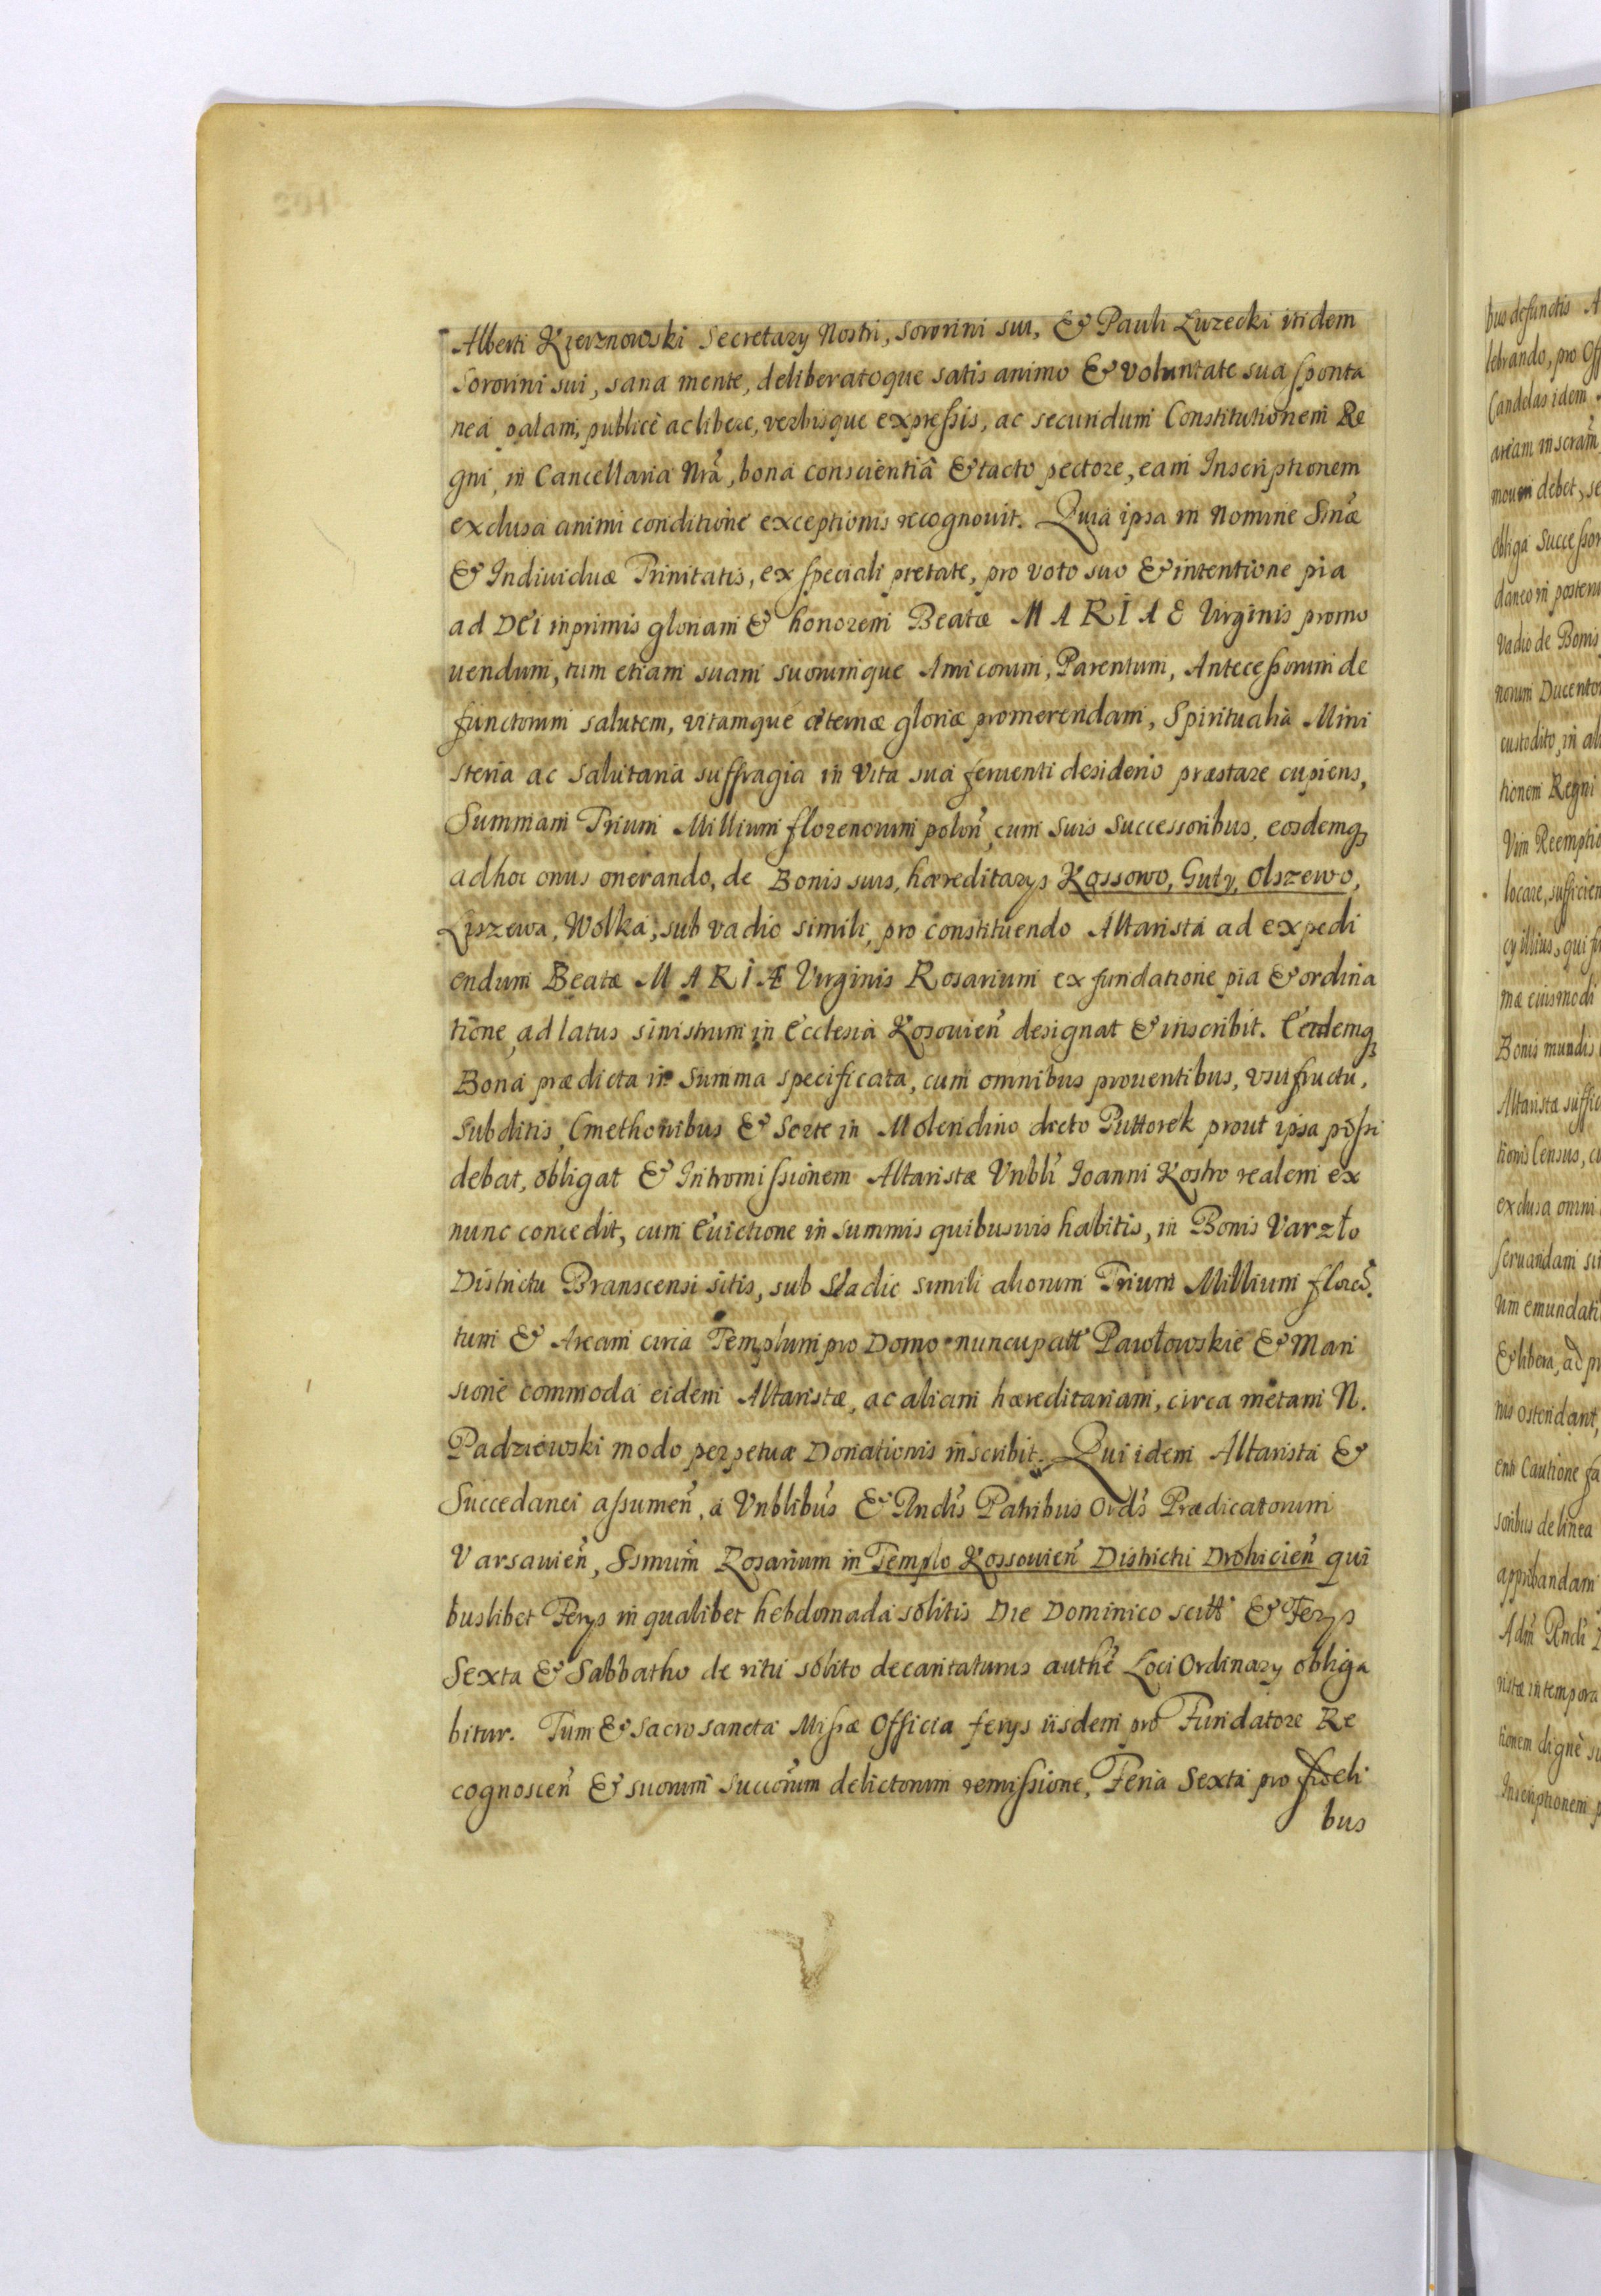 Alberti Kierznowski Secretary Nostri, sororini sui, & Pauli Luzecki itidem
Sororini sui, sana mente, deliberatoque satis animo & voluntate sua sponta
nea palam, publicè ac libere, verbisque expressis, ac secundum Constitutionem Re
gni, in Cancellaria Nrã, bona conscientiâ & tacto pectore, eam Inscriptionem
exclusa animi conditione exceptionis recognouit. Quia ipsa in Nomine Snæ
& Indiuiduæ Trinitatis, ex speciali pietate, pro voto suo & intentione pia
ad DEi inprimis gloriam & honorem Beatæ MARIAE Virginis promo
uendum, tum etiam suam suorumque Amicorum, Parentum, Antecessorum de
functorum salutem, vitamque æternæ gloriæ promerendam, Spiritualia Mini
steria ac salutaria suffragia in Vita sua feruenti desiderio præstare cupiens,
Summam Trium Millium florenorum polon̄, cum suis Successoribus, eosdemq
ad hoc onus onerando, de Bonis suis, hæreditarys Kossowo, Guty, Olszewo,
Liszewa, Wolka, sub vadio simili, pro constituendo Altarista ad expedi
endum Beatæ MARIÆ Virginis Rosarium ex fundatione pia & ordina
tione, ad latus sinistrum in Ecclesia Kosouien̄ designat & inscribit. Eademq
Bona prædicta in Summa specificata, cum omnibus prouentibus, vsufructu,
Subditis, Cmethonibus & Sorte in Molendino dicto Puttorek prout ipsa possi
debat, obligat & Intromissionem Altaristæ Vnbli Ioanni Kostro realem ex
nunc concedit, cum Euictione in summis quibusuis habitis, in Bonis Varzło
Districtu Branscensi sitis, sub Vadio simili aliorum Trium Millium flor̄
tum & Aream circa Templum pro Domo nuncupatt Pawłowskie & Man
sione commoda eidem Altaristæ, ac aliam hæreditariam, circa metam N.
Padziewski modo perpetuæ Donationis inscribit. Qui idem Altarista &
Succedanei assumen̄, a Vnblibus & Rndis Patribus Ords Prædicatorum
Varsauien̄, Ssmum Rosarium in Templo Kossouien̄ Districtu Drohicien̄ qui
buslibet Ferys in qualibet hebdomada solitis Die Dominico scitt & Ferys
Sexta & Sabbatho de ritu solito decantaturus authē Loci Ordinary obliga
bitur. Tum & sacrosancta Missæ Officia ferys iisdem pro Fundatore Re
cognoscen̄ & suorum succorum delictorum remissione, Feria Sexta pro fideli
bus